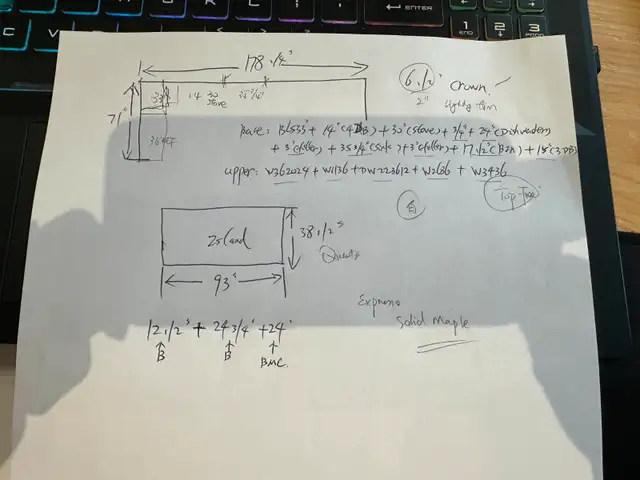 178 1/2"
71"
33
14 30 35 3/4"
stove
36
6.1/2" crown
2"
Base: BLS33 + 14"(4DB) + 30"(stove) + 3/4 + 24"(Dishwasher)
+ 3"(filler) + 35 3/4"(Sink) + 3"(filler) + 17.1/2"(B2A) + 18"(3DB)
upper: W362024 + W1136 + DW223612 + W2636 + W3436
Top-Tree
Island
38 1/2"
Quartz
93"
Express
Solid Maple
12 1/2" + 24 3/4" + 24"
B B BMC.
ENTER
1
END
2